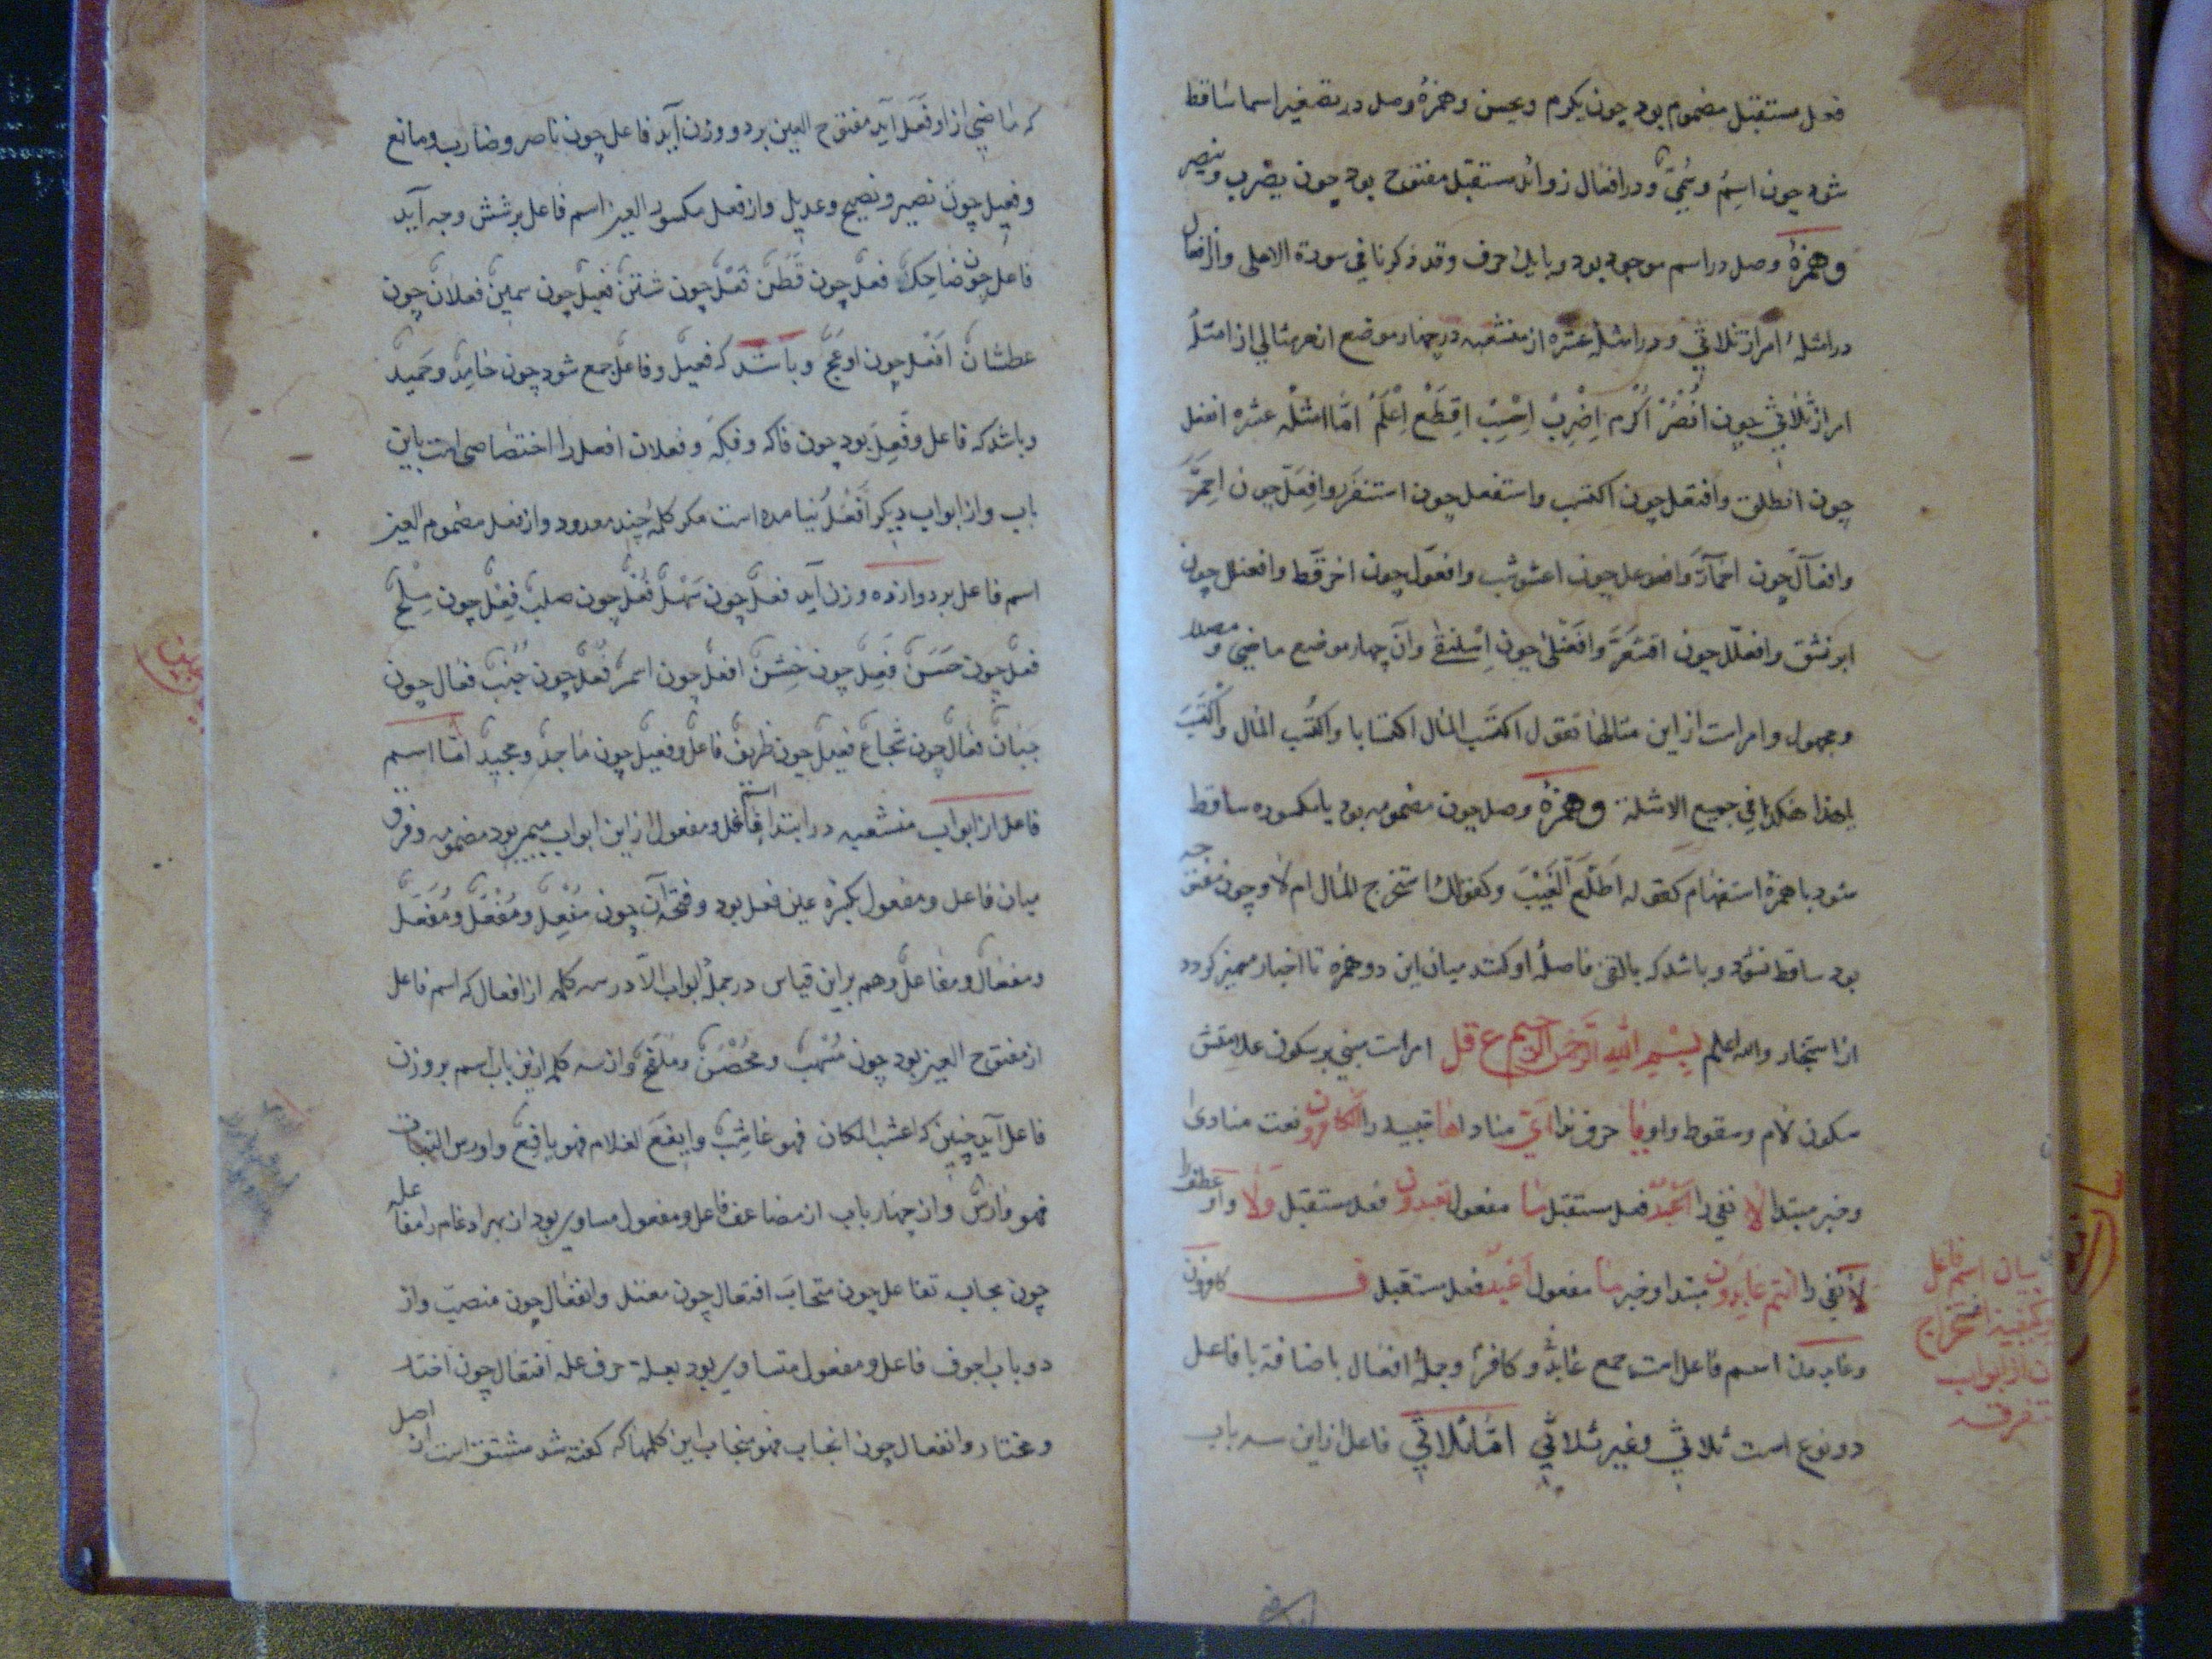 فعل مستقبل مضموم بود چون یکرم ویحسن وهمزهٔ وصل در تصغیر اسما ساقط
شود چون اسم وسُمَیّ ودر افعال زوائد مستقبل مفتوح بود چون یضرب وینصر
وهمزهٔ وصل در اسم موجود بود وقد ذکرنا فی سورة الاعلی واز افعال
در امثلهٔ امر از ثلاثی ودر امثلهٔ عشره از منشعبه در چهار موضع از هر مثالی از امثلهٔ
امر از ثلاثی چون اُنْصُرْ اُکْرُم اِضْرِبْ اِحْسِبْ اِقْطَعْ اِعْلَمْ امّا امثلهٔ عشره انفعل
چون انطلق وافتعل چون اکتسب واستفعل چون استنفر وافعلّ چون احمرَّ
وافعالّ چون احمارّ وافعوعل چون اعشوشب وافعوّل چون اخروّط وافعنلل چون
ابرنشق وافعللّ چون اقشعرّ وافعنلی چون اِسْلَنْقی وآن چهار موضع ماضی ومصدر
ومجهول وامر است از این مثالها تقول اکتَسَب المال اکتسابا واکتُسِب المال واکتَسِب
یا هذا هکذا فی جمیع الامثلة وهمزهٔ وصل چون مضمومه بود یا مکسوره ساقط
شود با همزهٔ استفهام کقوله اَطَّلَعَ الْغَیْبَ وکقولك استخرج المال ام لا وچون مفتوحه
بود ساقط نشود وباشد که بالفی فاصله او کنند میان این دو همزه تا اخبار ممیز گردد
از استخبار والله اعلم بِسْمِ اللهِ الرَّحْمنِ الرَّحیمِ ع قل امر است مبنی بر سکون علامتش
سکون لام وسقوط واو یا حرف ندا ایّ منادا ها تنبیه را الکافرون نعت منادی
وخبر مبتدا لا نفی را اَعْبُدُ فعل مستقبل ما مفعول تعبدون فعل مستقبل وَلا واو عطف را
لا نفی را انتم عابدون مبتدا وخبر ما مفعول اَعْبُدُ فعل مستقبل ف کافرون
وعابدون اسم فاعل است جمع عابدٌ وکافرٌ وجملهٔ افعال باضافة با فاعل
دو نوع است ثلاثی وغیر ثلاثی امّا ثلاثی فاعل از این سه باب
بیان اسم فاعل
استخراج
ن از ابواب
متفرقه
که ماضی از او فَعَل آید مفتوح العین بر دو وزن آید فاعل چون ناصر وضارب ومانع
وفعیل چون نصیر ونصیح وعدیل واز فعل مکسور العین اسم فاعل بر شش وجه آید
فاعل چون ضاحك فعل چون فَطُن فَعْل چون شثن فعیل چون سمین فعلان چون
عطشان افعل چون اعوج وباشد که فعیل وفاعل جمع شود چون حامد وحمید
وباشد که فاعل وفَعِل بود چون فاکه وفکه وفعلان افعل را اختصاصی است باین
باب واز ابواب دیگر اَفْعَلُ نیامده است مگر کلمهٔ چند معدود واز فعل مضموم العین
اسم فاعل بر دوازده وزن آید فعل چون سَهْل فُعْل چون صلب فِعْل چون مِلْح
فعل چون حَسَن فَعِل چون خَشِن افعل چون اسمر فُعُل چون جُنُب فعال چون
جبان فعال چون شجاع فعیل چون ظریف فاعل وفعیل چون ماجد ومجید امّا اسم
فاعل از ابواب منشعبه در ابتدا اسم فاعل ومفعول از این ابواب میم بود مضمومه وفرق
میان فاعل ومفعول بکسرهٔ عین فعل بود وفتحهٔ آن چون مُفْعِل ومُفْعَل ومُفَعَّل
ومفعال ومفاعل وهم بر این قیاس در جملهٔ ابواب الّا در سه کلمه از افعال که اسم فاعل
از مفتوح العین بود چون مُسْهَب ومُحْصَن ومُلْفَج واز سه کلمه از این باب اسم بر وزن
فاعل آید چنین که اعشب المکان فهو عاشب وایفع الغلام فهو یافع واورس النبات
فهو وارس واز چهار باب از مضاعف فاعل ومفعول مساوی بود از بهر ادغام را مفاعله
چون محابّ تفاعل چون متحابّ افتعال چون معتل وانفعال چون منصبّ واز
دو باب اجوف فاعل ومفعول متساوی بود بعلة حرف عله افتعال چون اختار
ومختار وانفعال چون انجاب فهو منجاب این کلمها که گفته شد مشتق است از اصل